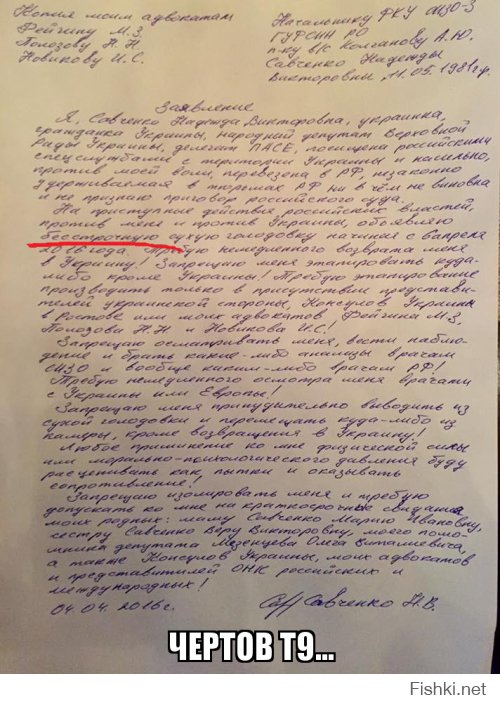 Копия моим адвокатам
Фейгину М.З.
Полозову Н.Н.
Новикову И.С.
Начальнику ФКУ СИЗО-3
ГУФСИН РО
п-ку в/с Колганову А.Ю.
Савченко Надежды
Викторовны, 11.05.1981г.р.
Заявление
Я, Савченко Надежда Викторовна, украинка,
гражданка Украины, народный депутат Верховной
Рады Украины, делегат ПАСЕ, похищена российскими
спецслужбами с територии Украины и насильно,
против моей воли, перевезена в РФ, незаконно
удерживаемая в тюрьмах РФ ни в чём не виновна
и не признаю приговор российского суда.
На преступные действия российских властей,
против меня и против Украины, объявляю
бесстрочную сухую голодовку начиная с 6апреля
2016года. Требую немедленного возврата меня
в Украину! Запрещаю меня этапировать куда-
либо кроме Украины! Требую этапирование
производить только в присутствии представи-
телей украинской стороны, Консулов Украины
в Ростове или моих адвокатов Фейгина М.З,
Полозова Н.Н и Новикова И.С!
Запрещаю осматривать меня, вести наблю-
дение и брать какие-либо анализы врачам
СИЗО и вообще каким-либо врачам РФ!
Требую немедленного осмотра меня врачами
с Украины или Европы!
Запрещаю меня принудительно выводить из
сухой голодовки и перемещать куда-либо из
камеры, кроме возвращения в Украину!
Любое применение ко мне физической силы
или морально-психологического давления буду
расценивать как пытки и оказывать
сопротивление!
Запрещаю изолировать меня и требую
допускать ко мне на краткосрочные свидания
моих родных: маму Савченко Марию Ивановну,
сестру Савченко Веру Викторовну, моего помо-
шника депутата Мезенцева Олега Виталиевича,
а также Консулов Украины, моих адвокатов
и представителей ОНК российских и
международных!
04.04.2016г. Савченко Н.В.
ЧЕРТОВ Т9...
Fishki.net